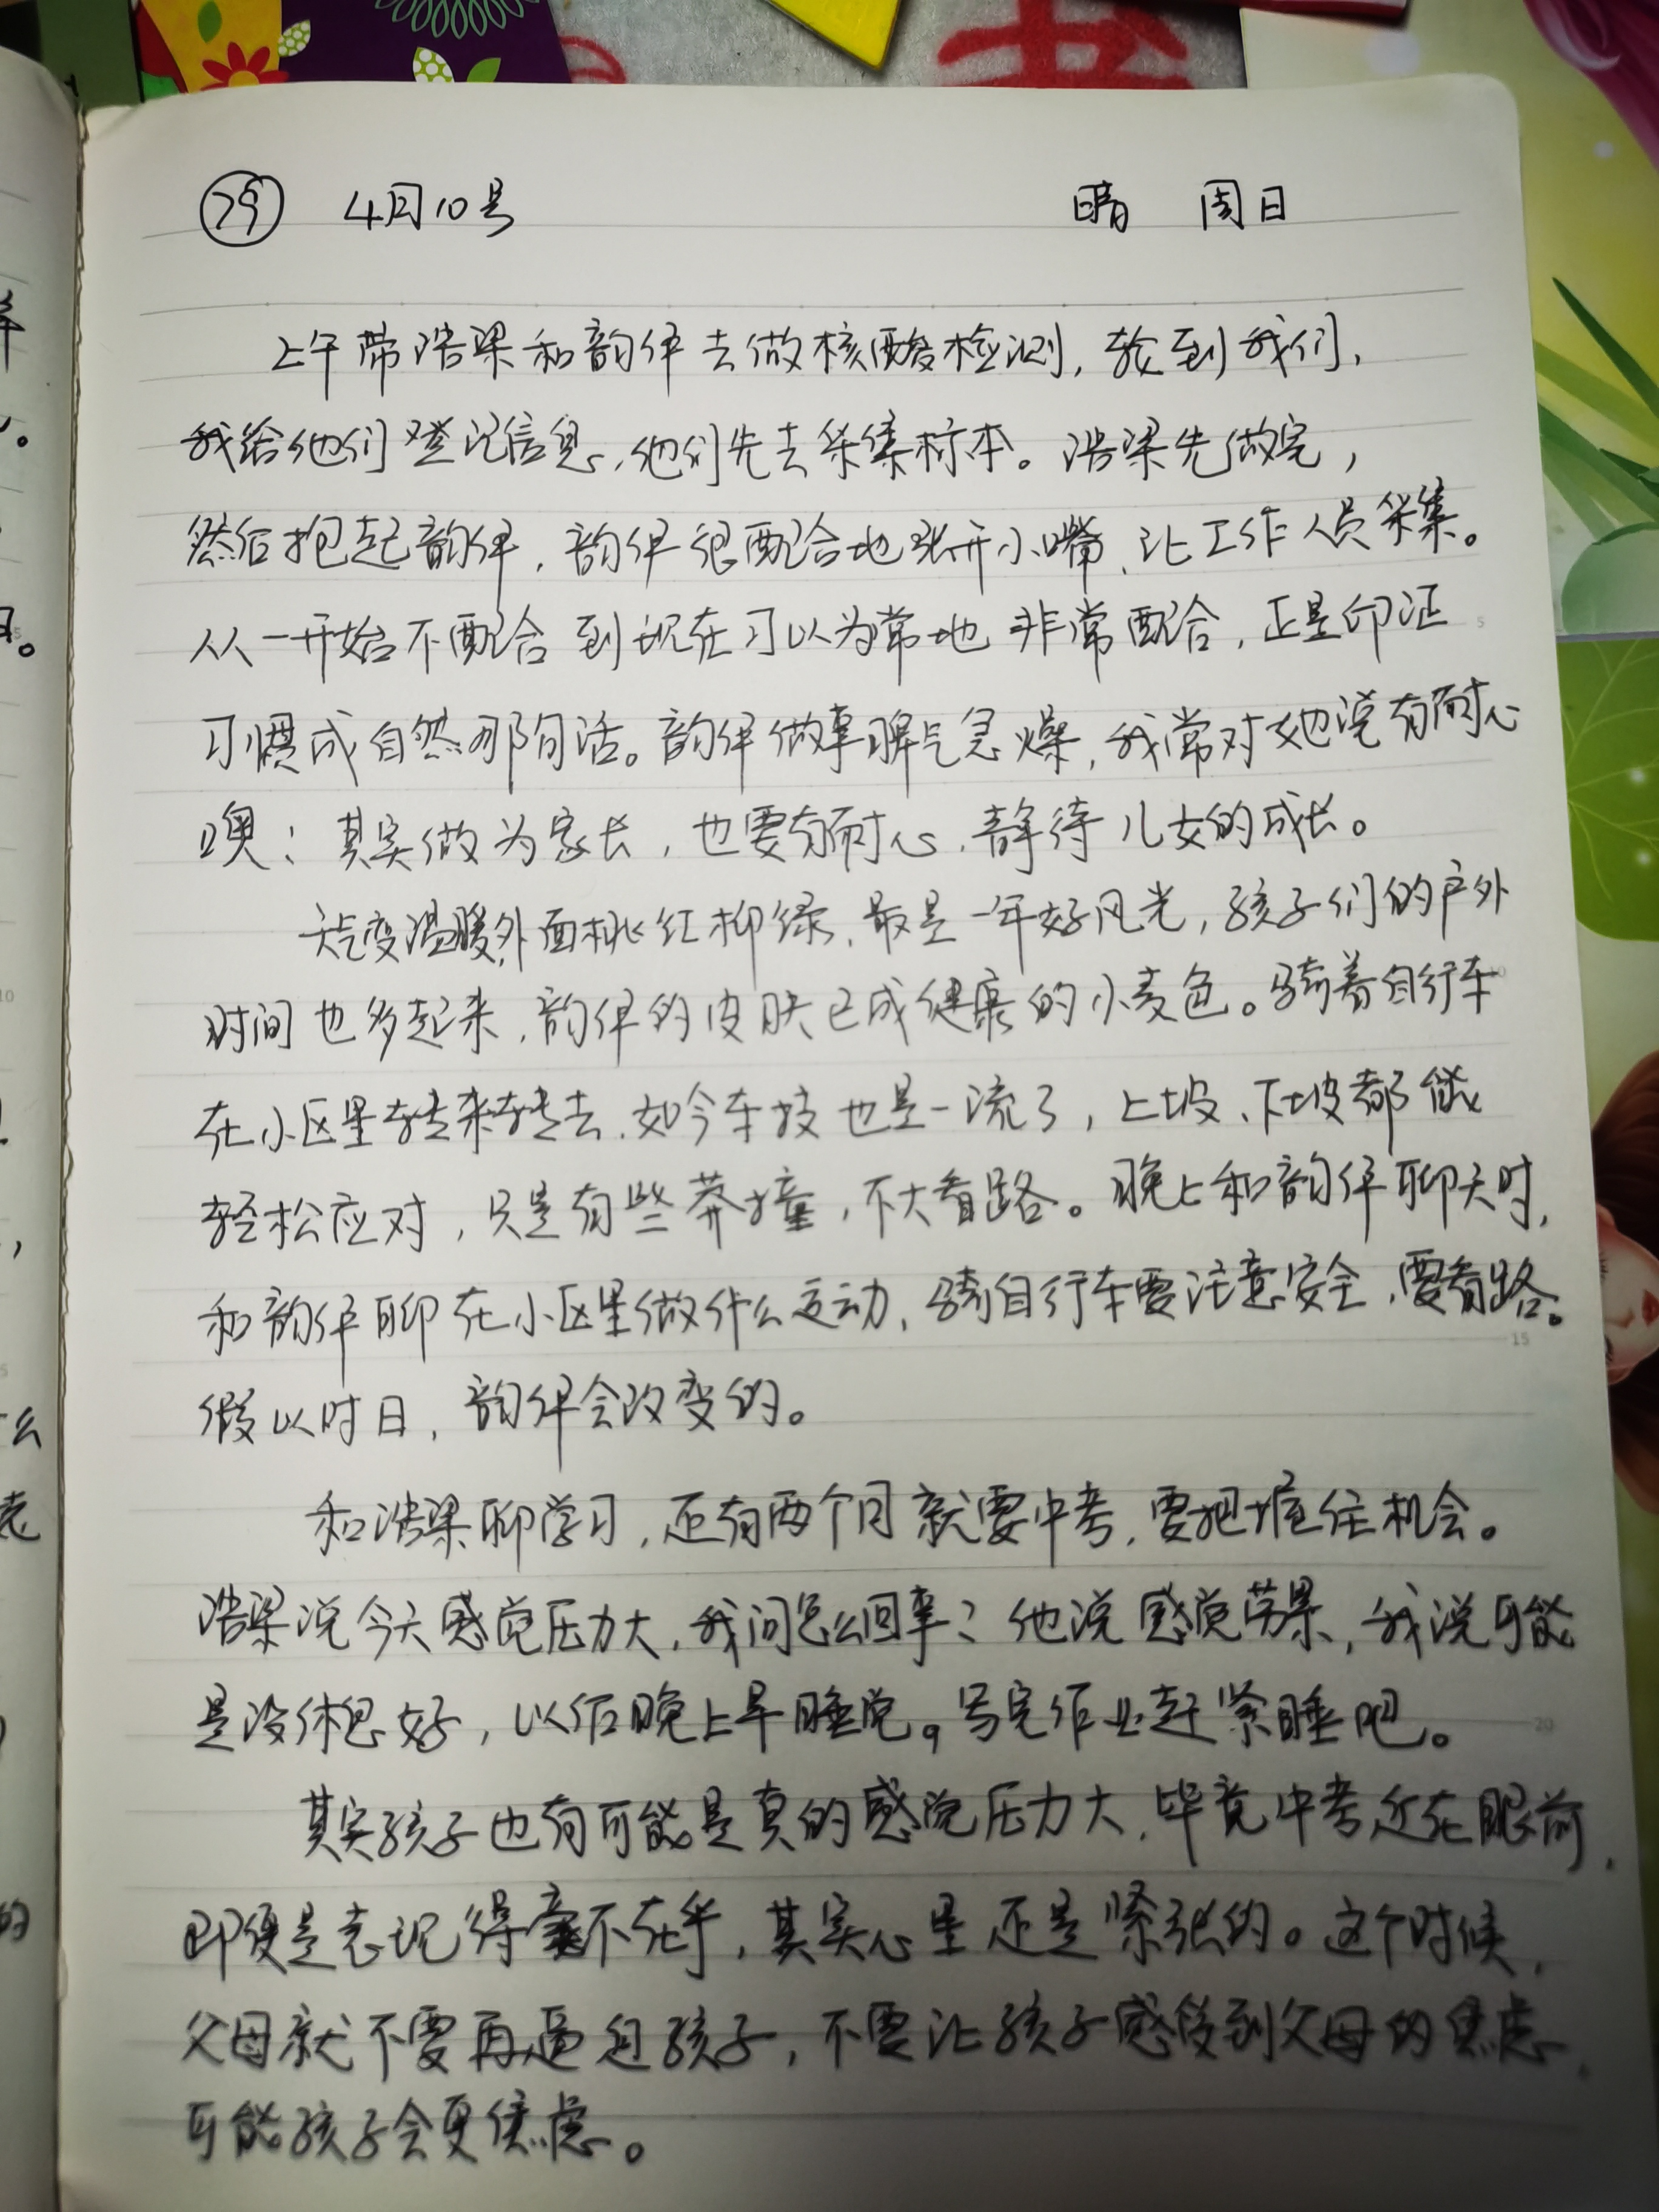 79 4月10号 晴 周日
上午带浩梁和韵伊去做核酸检测，轮到我们，
我给他们登记信息，他们先去采集标本。浩梁先做完，
然后抱起韵伊，韵伊很配合地张开小嘴，让工作人员采集。
从一开始不配合到现在习以为常地非常配合，正是印证
习惯成自然那句话。韵伊做事脾气急燥，我常对她说有耐心
噢；其实做为家长，也要有耐心，静待儿女的成长。
天气变温暖，外面桃红柳绿，最是一年好风光，孩子们的户外
时间也多起来，韵伊的皮肤已成健康的小麦色。骑着自行车
在小区里转来转去，如今车技也是一流了，上坡、下坡都能
轻松应对，只是有些莽撞，不大看路。晚上和韵伊聊天时，
和韵伊聊在小区里做什么运动，骑自行车要注意安全，要看路。
假以时日，韵伊会改变的。
和浩梁聊学习，还有两个月就要中考，要把握住机会。
浩梁说今天感觉压力大，我问怎么回事？他说感觉劳累，我说可能
是没休息好，以后晚上早睡觉。写完作业赶紧睡吧。
其实孩子也有可能是真的感觉压力大，毕竟中考近在眼前，
即便是表现得毫不在乎，其实心里还是紧张的。这个时候，
父母就不要再逼迫孩子，不要让孩子感受到父母的焦虑，
可能孩子会更焦虑。